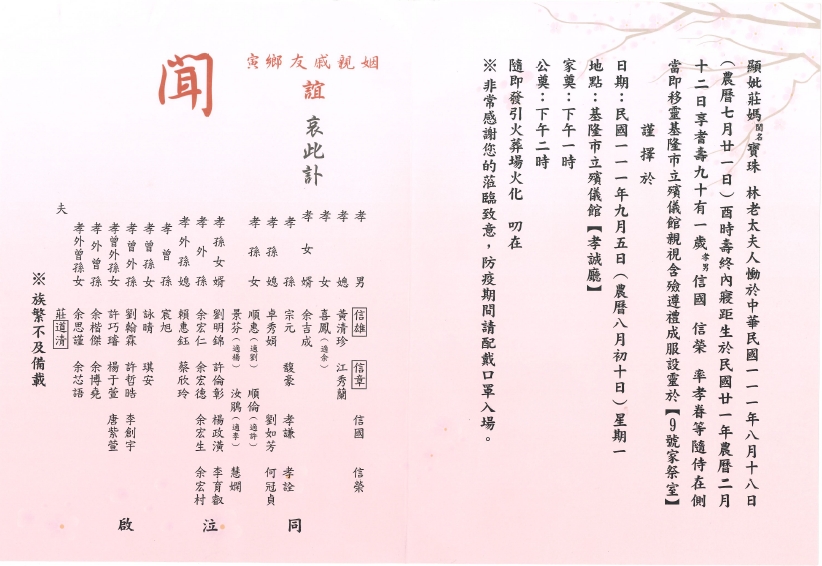 顯妣莊媽閨名寶珠 林老太夫人慟於中華民國一一一年八月十八日
(農曆七月廿一日)酉時壽終內寢距生於民國廿一年農曆二月
十二日享耆壽九十有一歲孝男信國 信榮 率孝眷等隨侍在側
當即移靈基隆市立殯儀館親視含殮遵禮成服設靈於【9號家祭室】
謹擇於
日期:民國一一一年九月五日(農曆八月初十日)星期一
地點:基隆市立殯儀館【孝誠廳】
家奠:下午一時
公奠:下午二時
隨即發引火葬場火化 叨在
※ 非常感謝您的蒞臨致意,防疫期間請配戴口罩入場。
姻親戚友鄉寅
誼
哀此訃
聞
孝男 信雄 信章 信國 信榮
孝媳 黃清珍 江秀蘭
孝女 喜鳳(適余)
孝女婿 余吉成
孝孫 宗元 馥豪 孝謙 孝詮
孝孫媳 卓秀娟 劉如芳 何冠貞
孝孫女 順惠(適劉) 順倫(適許)
景芬(適楊) 汝鵑(適李) 慧嫻
孝孫女婿 劉明錦 許倫彰 楊政潢 李育叡
孝外孫 余宏仁 余宏德 余宏生 余宏村
孝外孫媳 賴惠鈺 蔡欣玲
孝曾孫 宸旭
孝曾孫女 詠晴 琪安
孝曾外孫 劉翰霖 許哲晧 李創宇
孝曾外孫女 許巧瑢 楊于萱 唐紫萱
孝外曾孫 余楷傑 余博堯
孝外曾孫女 余思謹 余芯語
夫 莊道清
同泣啟
※ 族繁不及備載